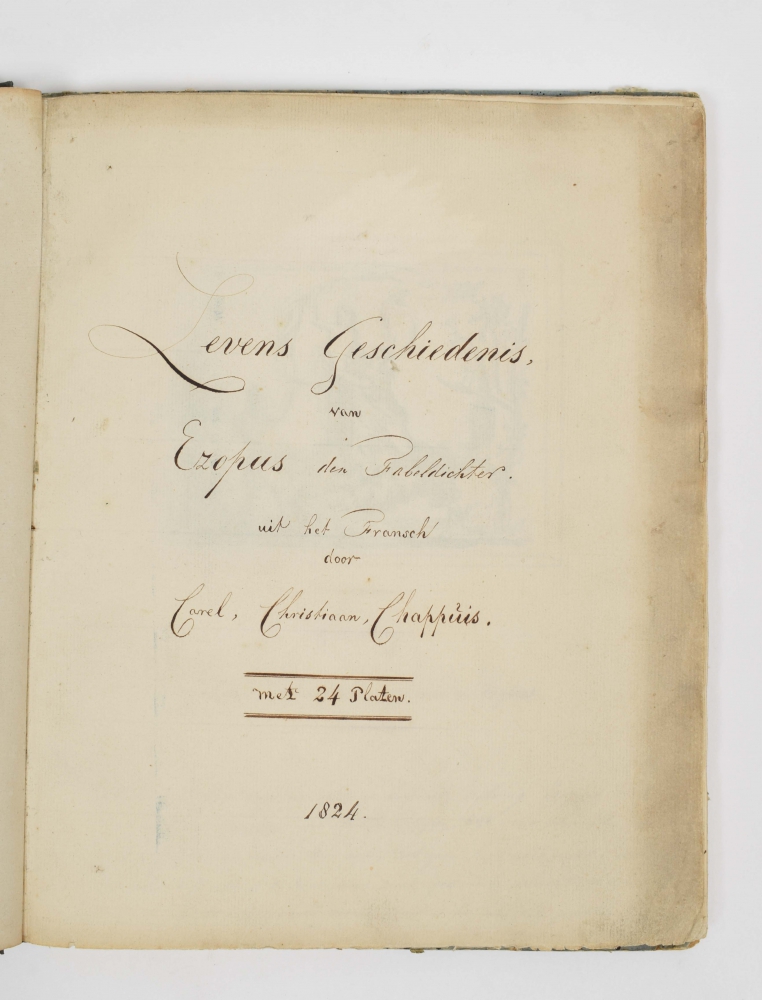 Levens Geschiedenis,
van
Ezopus den Fabeldichter.
uit het Fransch
door
Carel, Christiaan, Chappüis.
met 24 Platen.
1824.